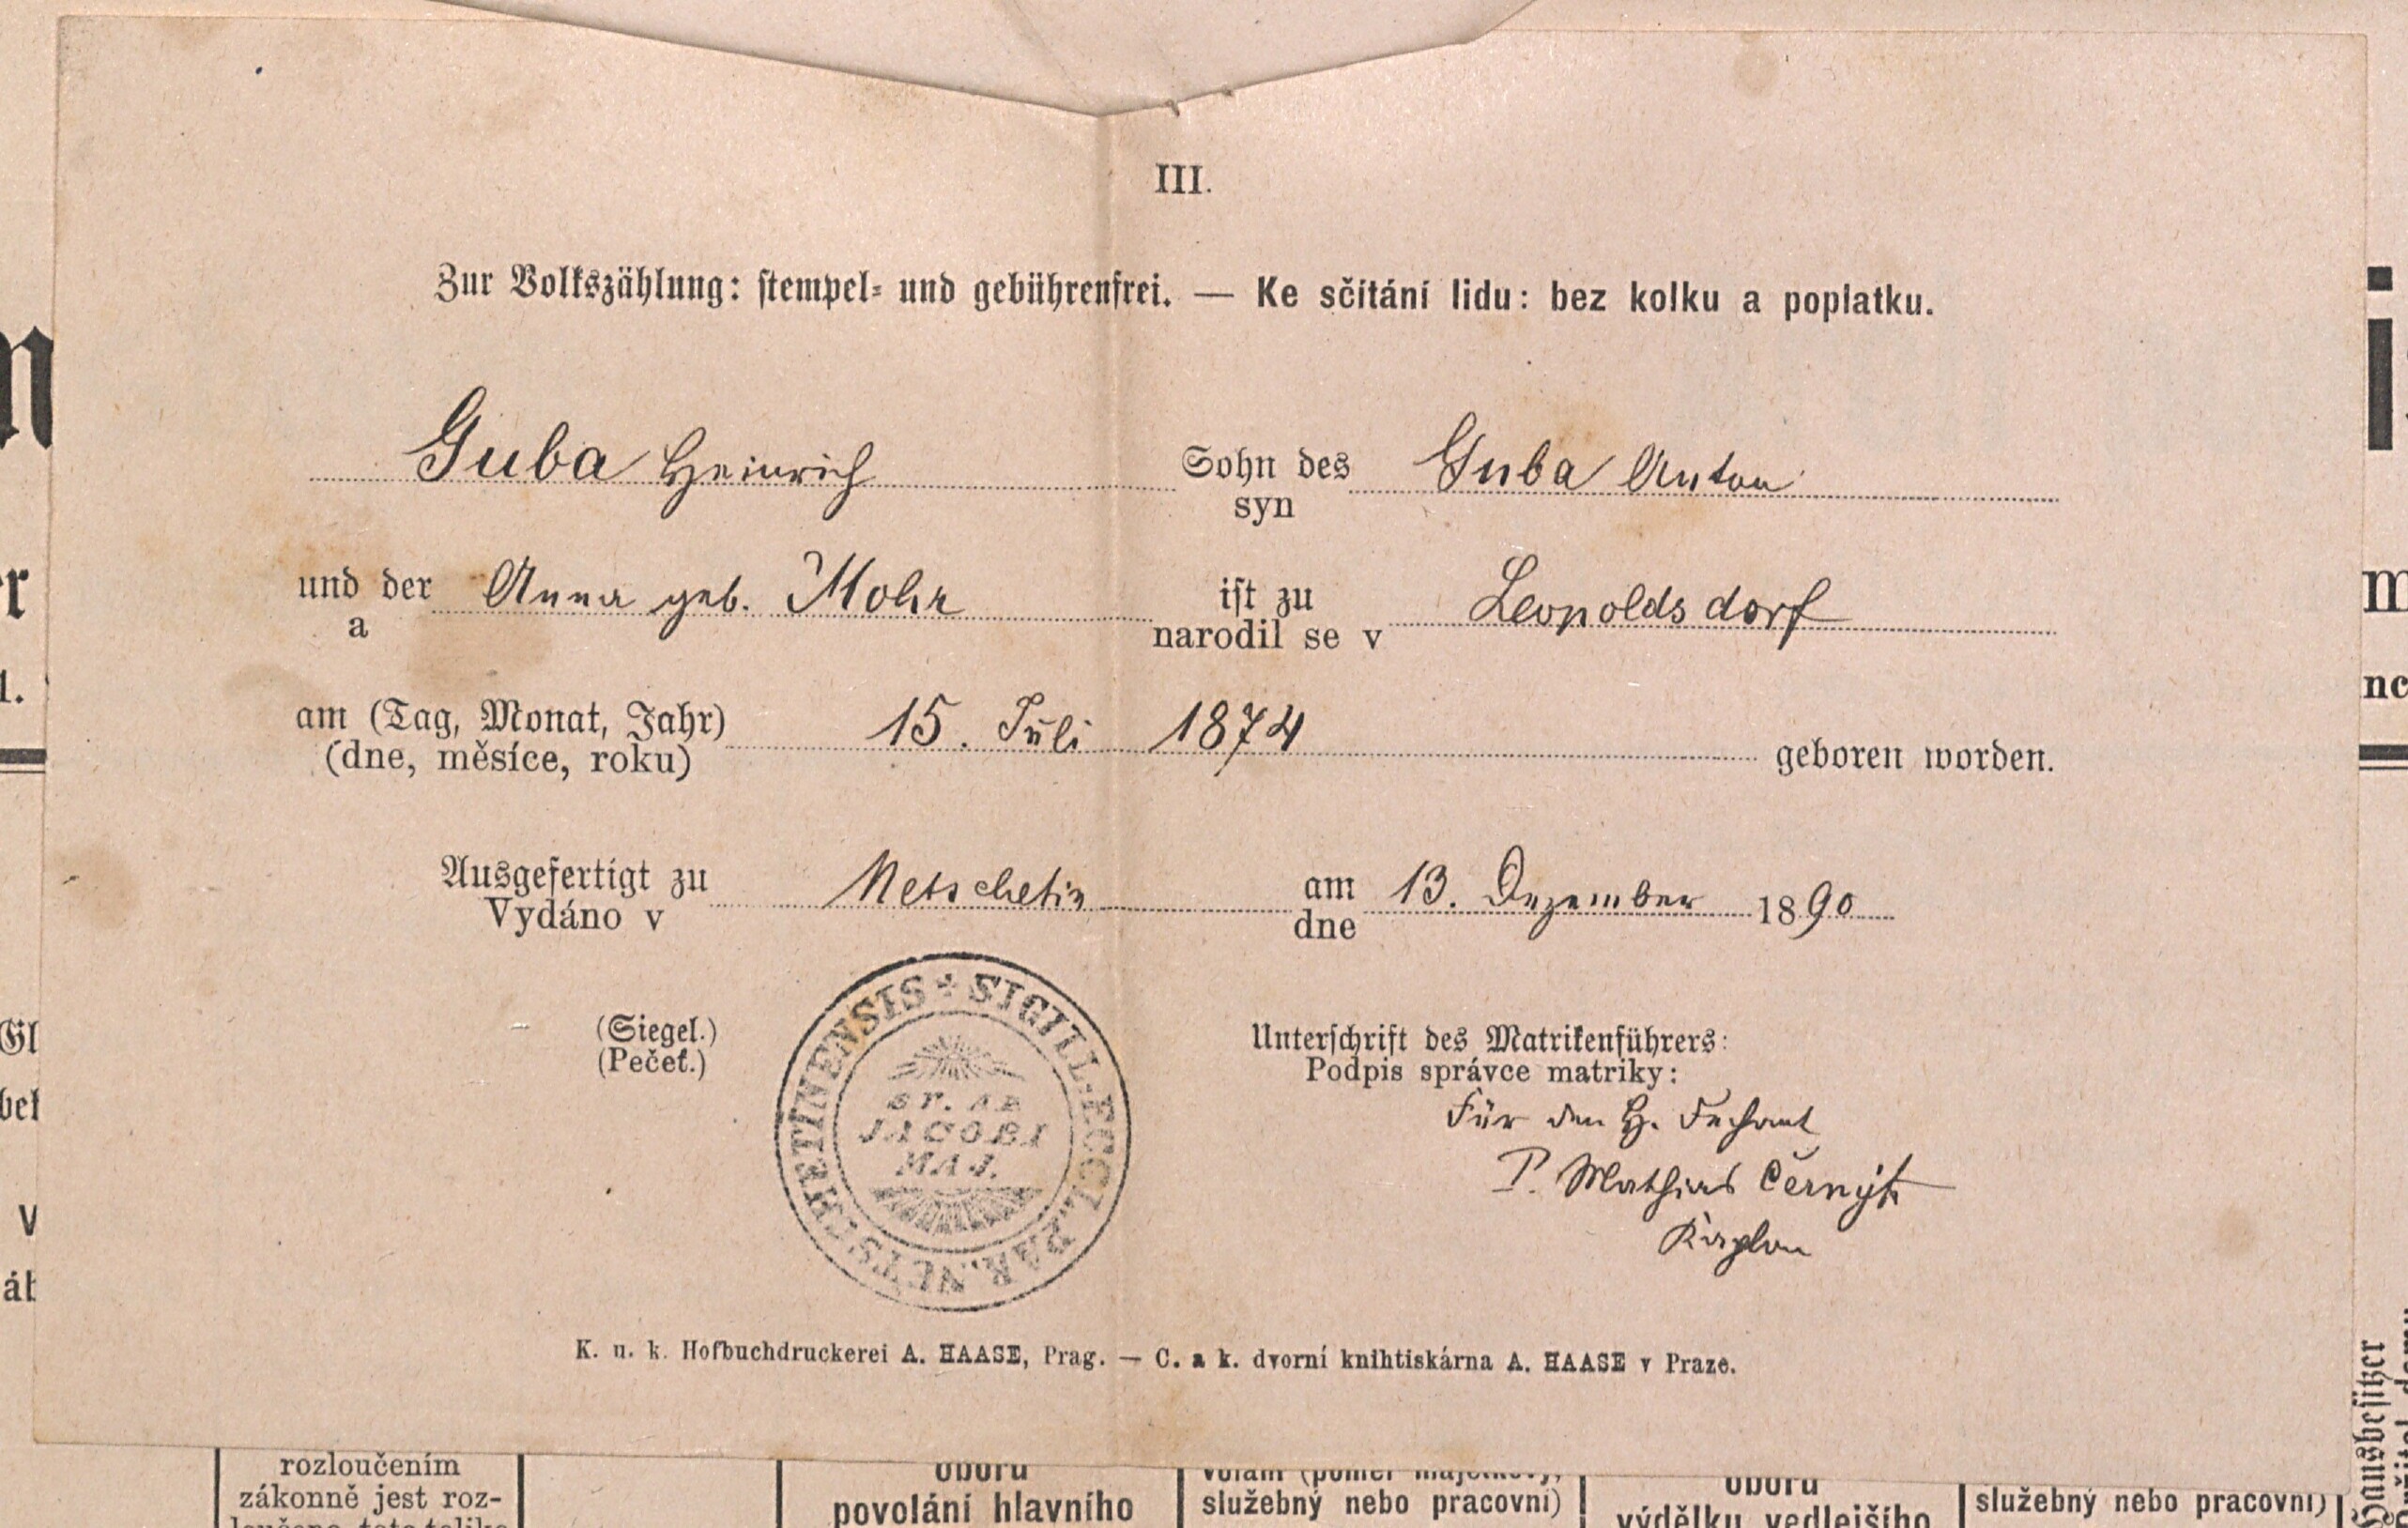 III.
Zur Volkszählung: stempel- und gebührenfrei. — Ke sčítání lidu: bez kolku a poplatku.
Guba Heinrich Sohn des Guba Anton
syn
und der Anna geb. Mohr ist zu Leopoldsdorf
a narodil se v
am (Tag, Monat, Jahr) 15. Juli 1874 geboren worden.
(dne, měsíce, roku)
Ausgefertigt zu Netschetin am 13. Dezember 1890
Vydáno v dne
(Siegel.)
(Pečeť.)
SIGILL. ECCL. PAR. NETSCHETINENSIS
ST. AP.
JACOBI
MAJ.
Unterschrift des Matrikenführers:
Podpis správce matriky:
Für den H. Dechant
P. Mathias Černý
Kaplan
K. u. k. Hofbuchdruckerei A. HAASE, Prag. — C. a k. dvorní knihtiskárna A. HAASE v Praze.
rozloučením
zákonně jest roz-
oboru
povolání hlavního
služebný nebo pracovní)
oboru
výdělku vedlejšího
služebný nebo pracovní)
Hausbesitzer